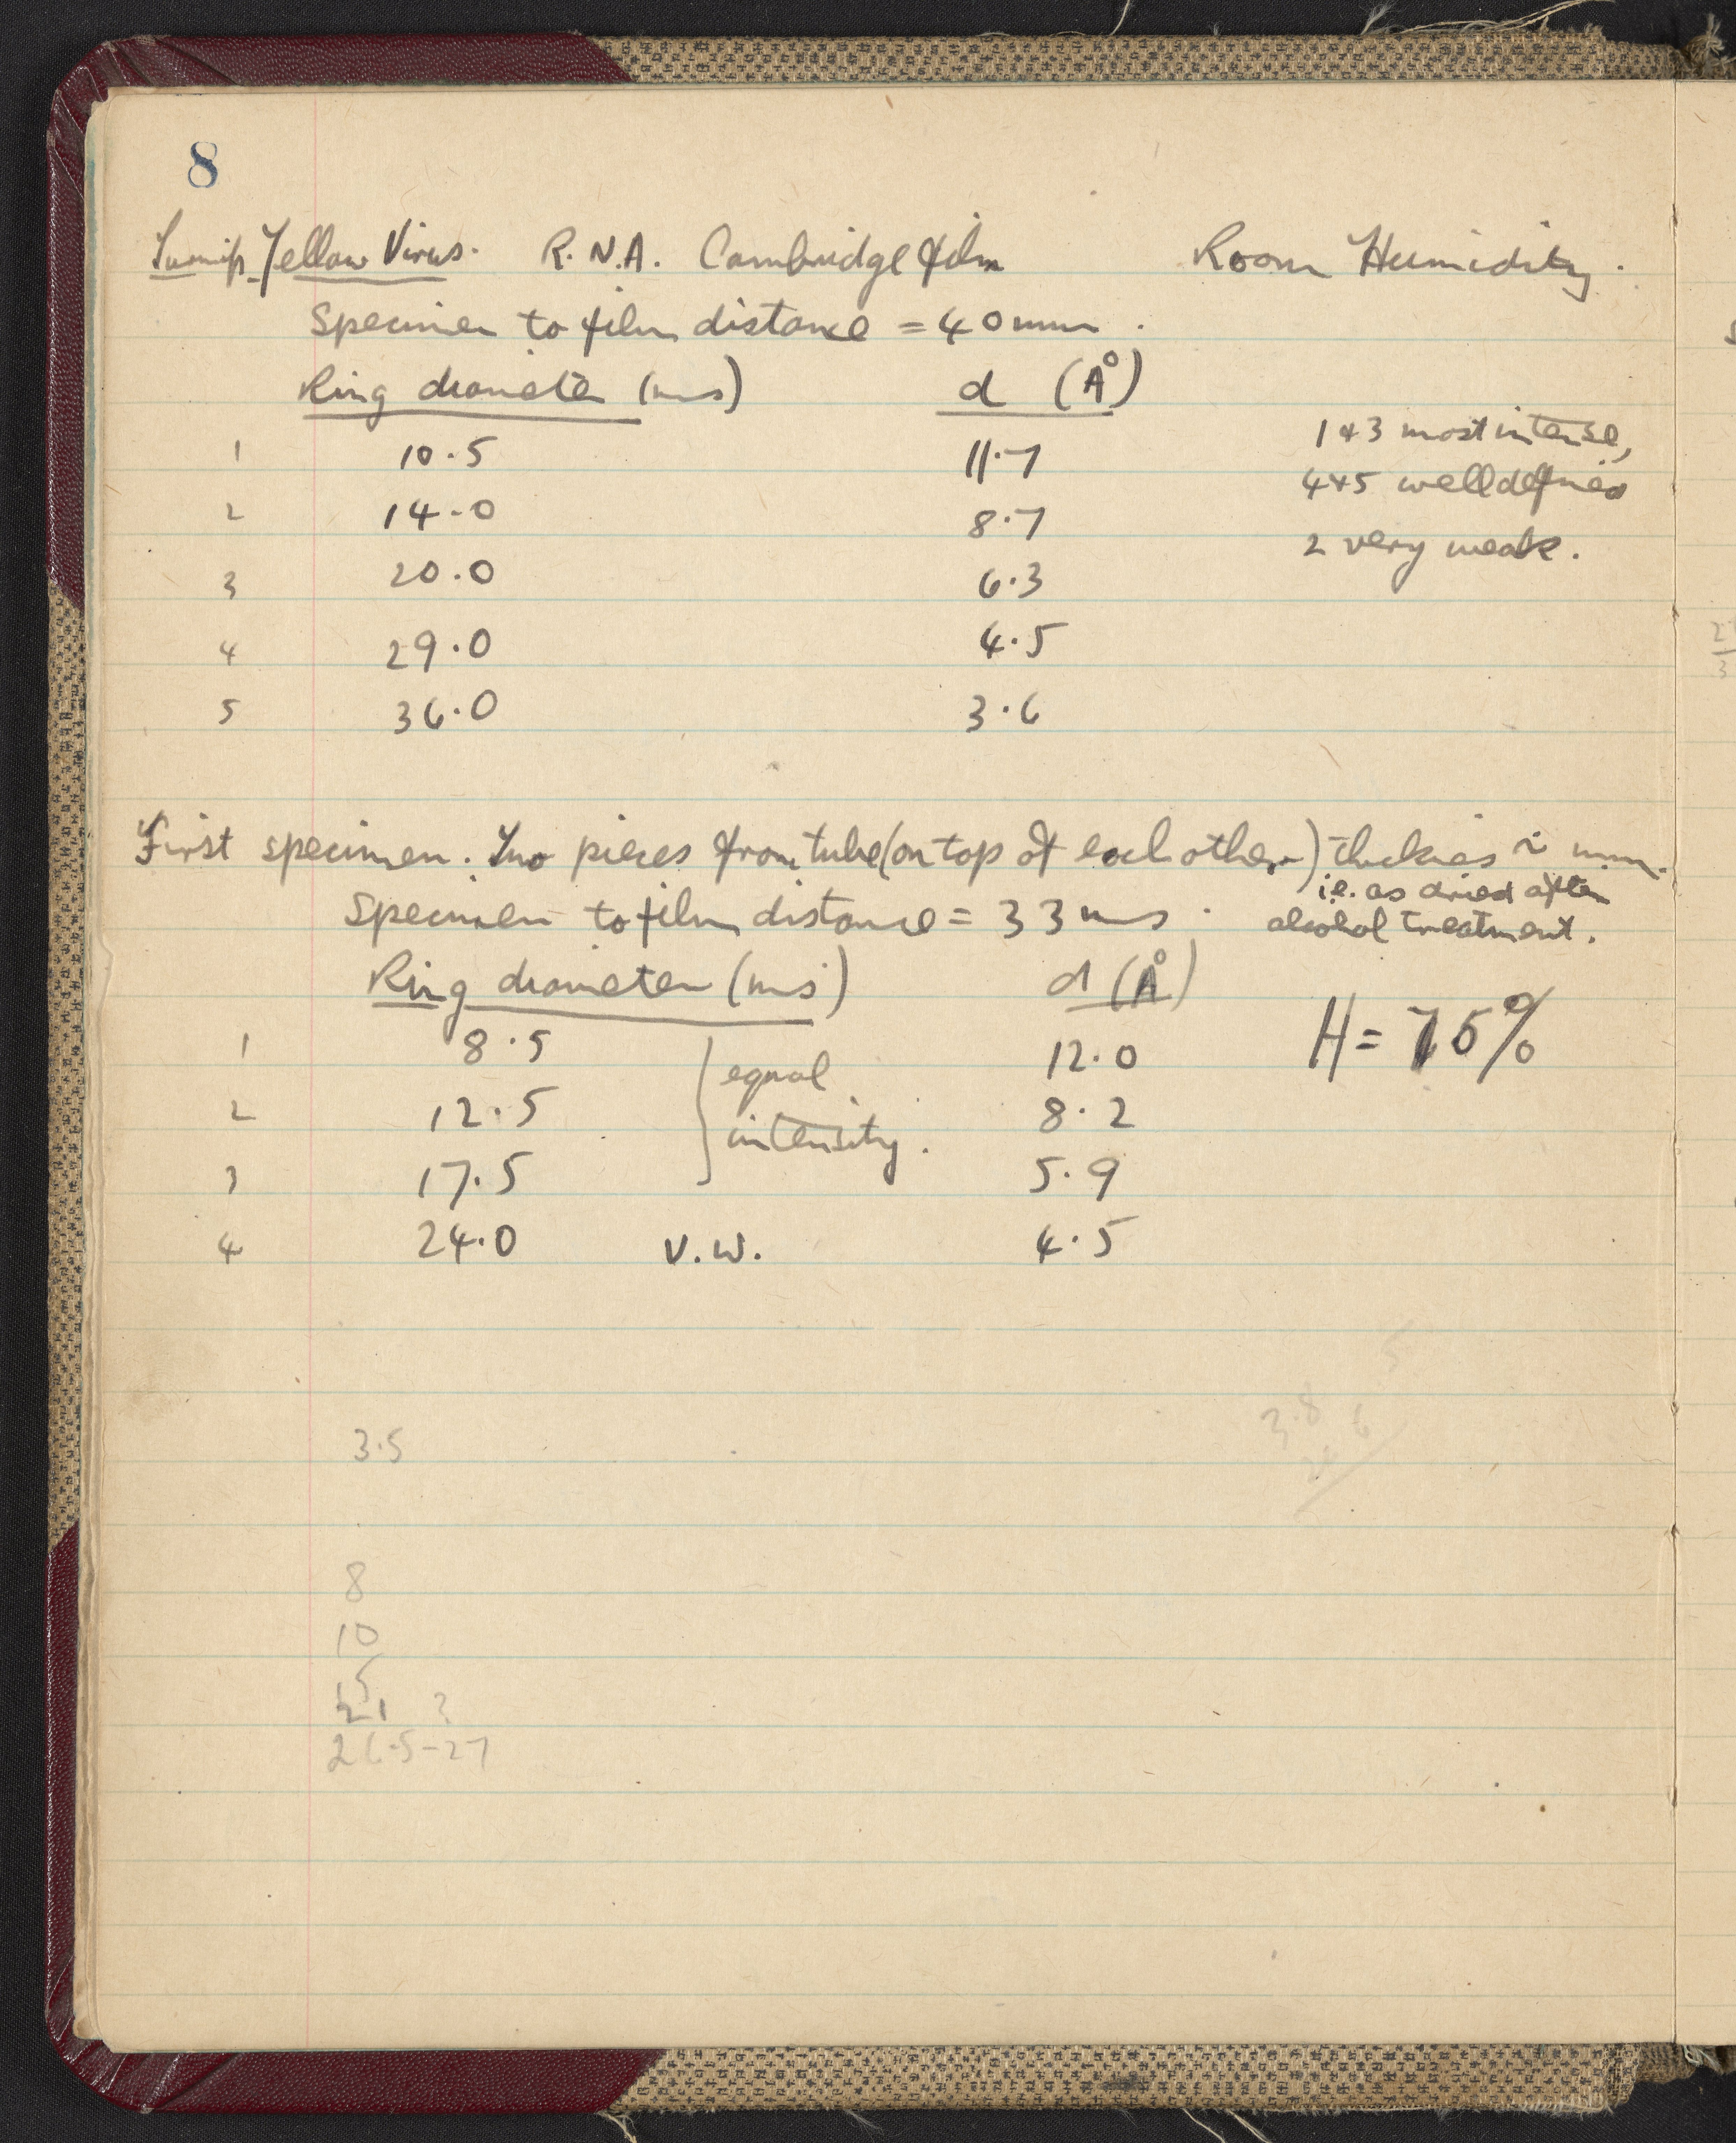 8
Turnip Yellow Virus. R.N.A. Cambridge film Room Humidity.
Specimen to film distance = 40 mm.
Ring diameter (ms) d (Å)
1 10.5 11.7 1 & 3 most intense,
2 14.0 8.7 4 & 5 well defined
3 20.0 6.3 2 very weak.
4 29.0 4.5
5 36.0 3.6
First specimen. Two pieces from tube (on top of each other) thickness ~ mm.
i.e. as dried after
Specimen to film distance = 33 ms. alcohol treatment.
Ring diameter (ms) d (Å)
H = 75%
1 8.5 12.0
equal
2 12.5 8.2
intensity.
3 17.5 5.9
4 24.0 V.W. 4.5
3.8 6
3.5
8
10
15
21 ?
26.5-27